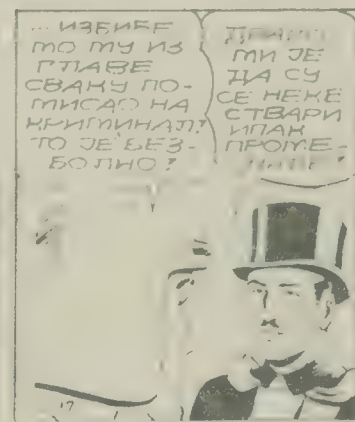 ... ИЗБИЕЕ
МО МУ ИЗ
ГЛАВЕ
СВАКУ ПО-
МИСАО НА
КРИМИНАЛ!
ТО ЈЕ БЕЗ-
БОЛНО!
ДРАГО
МИ ЈЕ
ДА СУ
СЕ НЕКЕ
СТВАРИ
ИПАК
ПРОМЕ-
НИЛЕ!
17